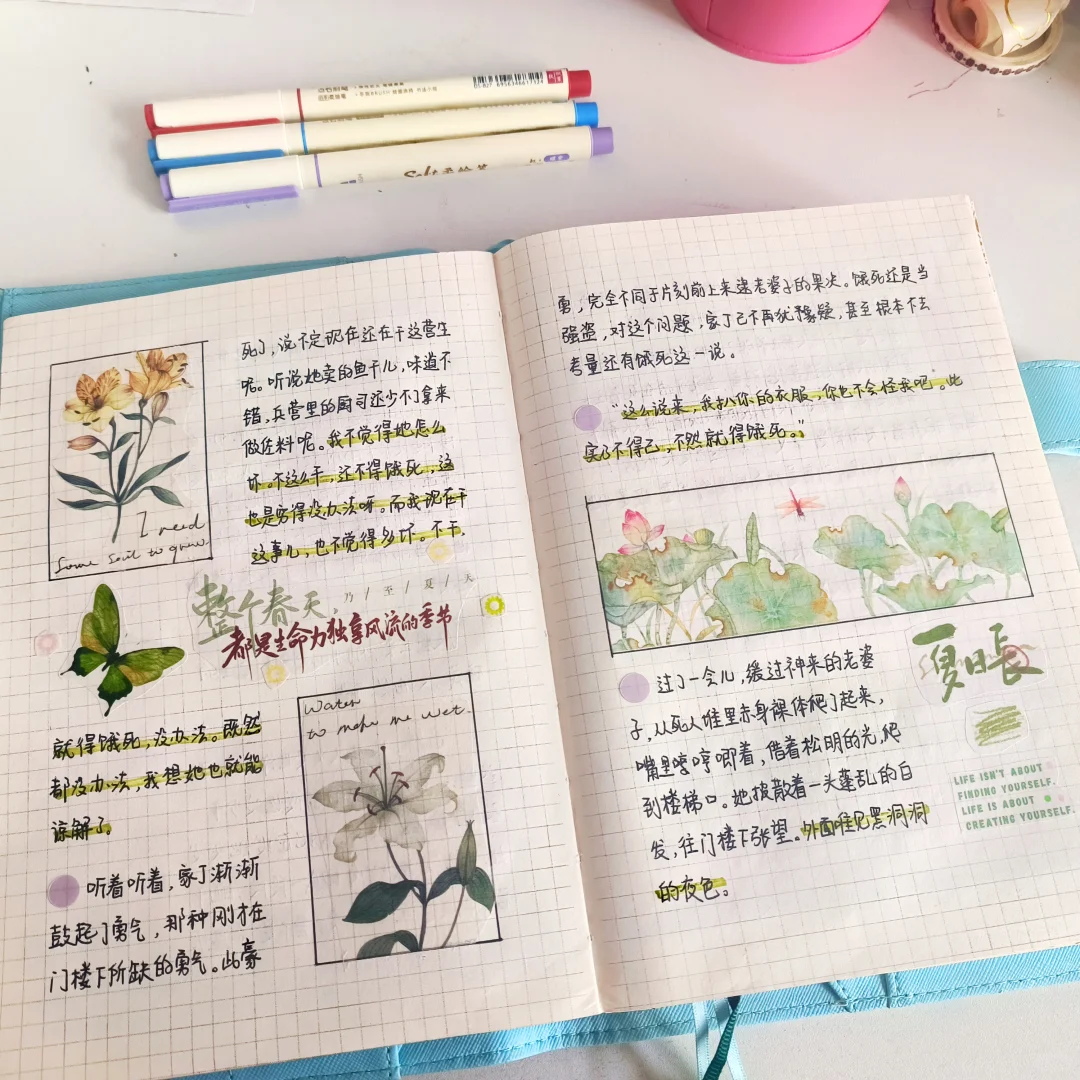 85-807 6956346617534
Soft
死了,说不定现在还在干这营生
呢。听说她卖的鱼干儿,味道不
错,兵营里的厨司还少不了拿来
做佐料呢。我不觉得她怎么
坏。不这么干,还不得饿死,这
也是穷得没办法呀。而我现在干
这事儿,也不觉得多坏。不干,
I need
Some soil to grow.
整个春天,
乃/至/夏/天
都是生命力独享风流的季节
就得饿死,没办法。既然
都没办法,我想她也就能
谅解了。
听着听着,家丁渐渐
鼓起了勇气,那种刚才在
门楼下所缺的勇气。此豪
Water
to make me wet.
勇,完全不同于片刻前上来逮老婆子的果决。饿死还是当
强盗,对这个问题,家丁已不再犹豫疑,甚至根本不去
考量还有饿死这一说。
“这么说来,我扒你的衣服,你也不会怪我吧,此
实乃不得已,不然就得饿死。”
过了一会儿,缓过神来的老婆
子,从死人堆里赤身裸体爬了起来,
嘴里哼唧着,借着松明的光,爬
到楼梯口。她披散着一头蓬乱的白
发,往门楼下张望。外面唯见黑洞洞
的夜色。
夏日长
LIFE ISN'T ABOUT
FINDING YOURSELF.
LIFE IS ABOUT
CREATING YOURSELF.